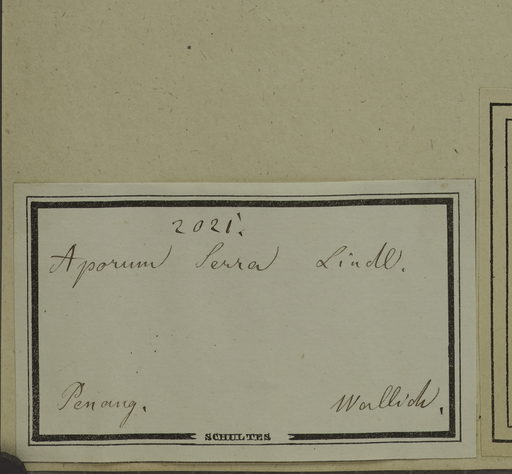 2021.
Aporum Serra Lindl.
Penang. Wallich.
SCHULTES